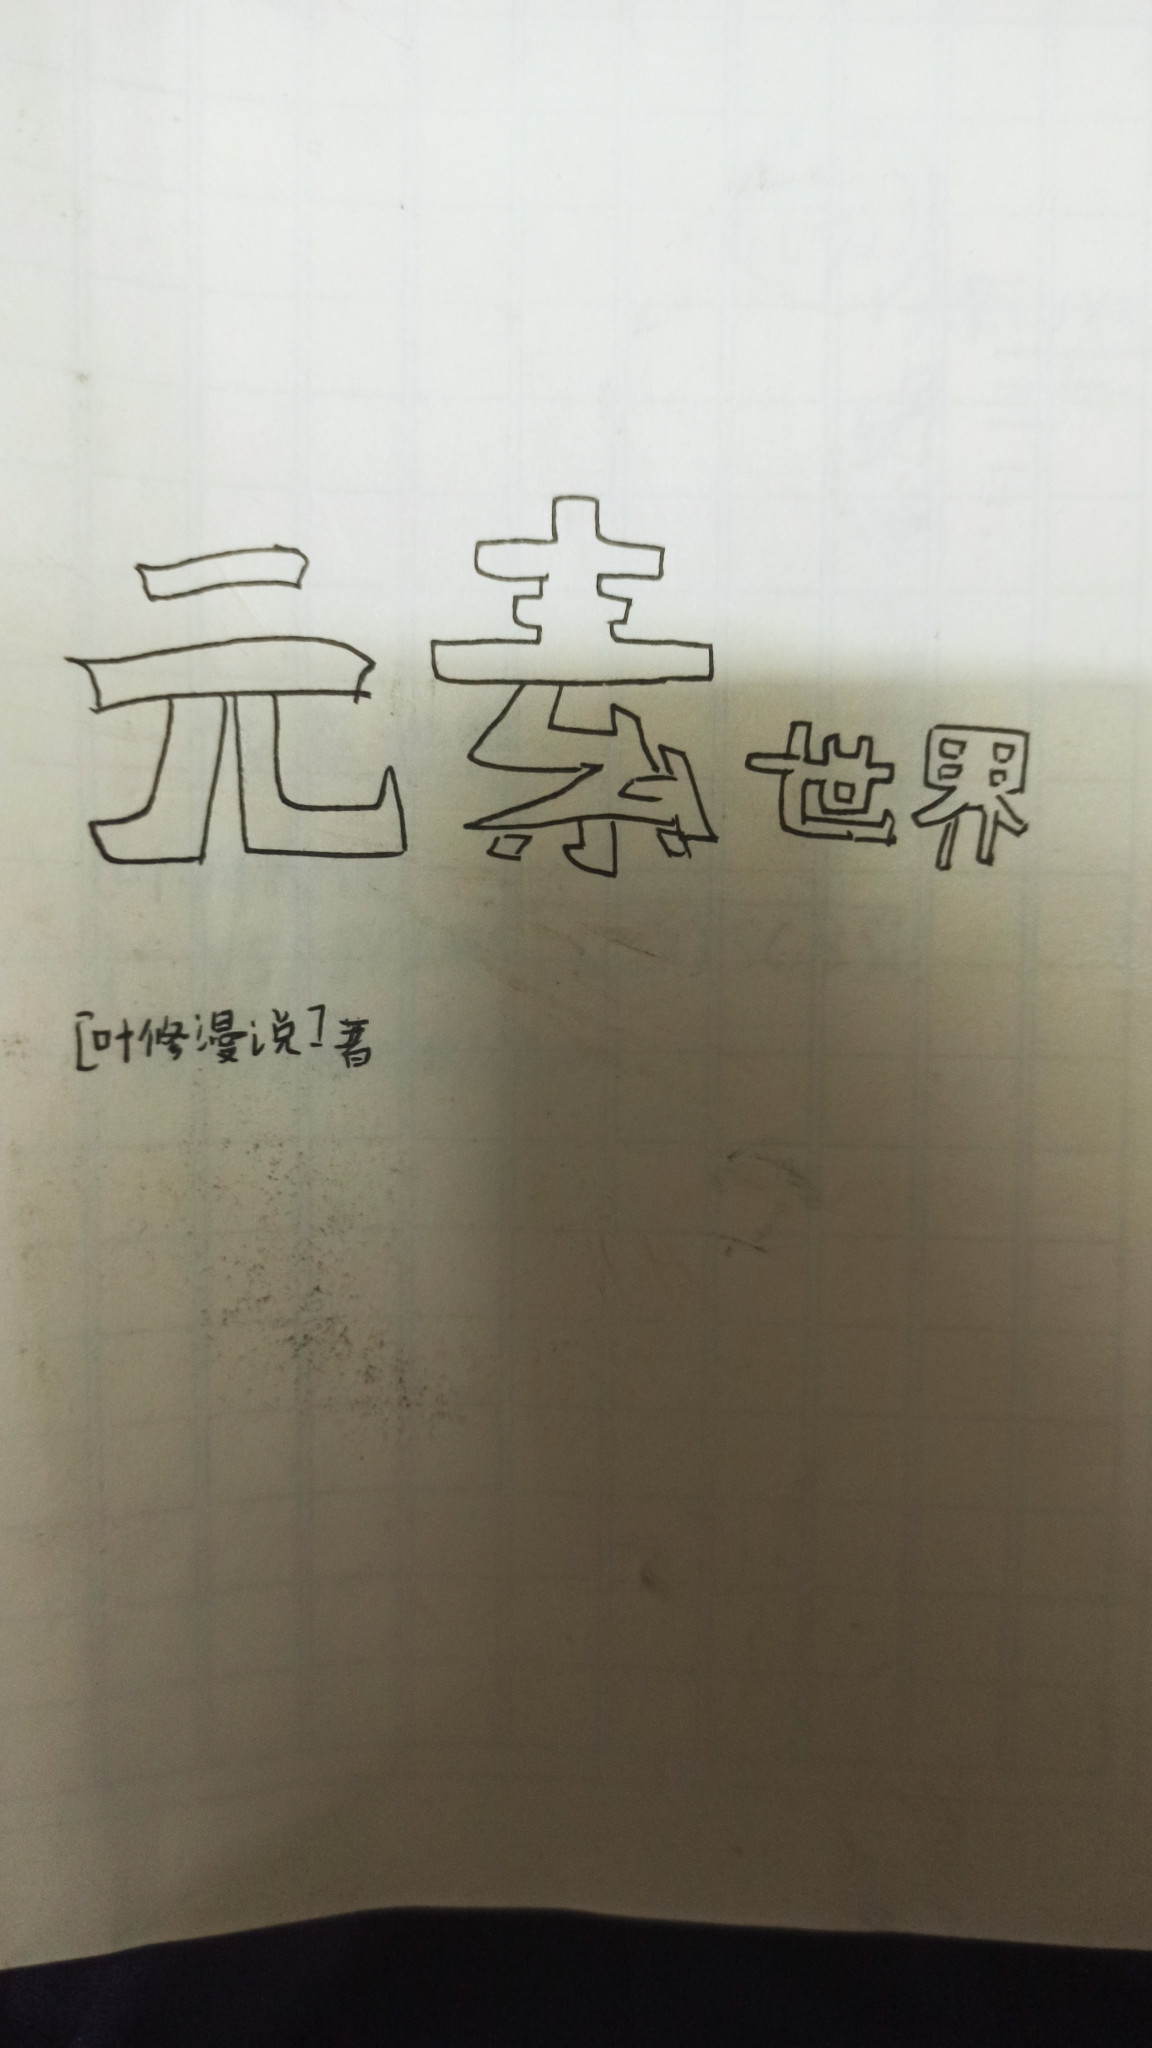 元素世界
[叶修漫说]著